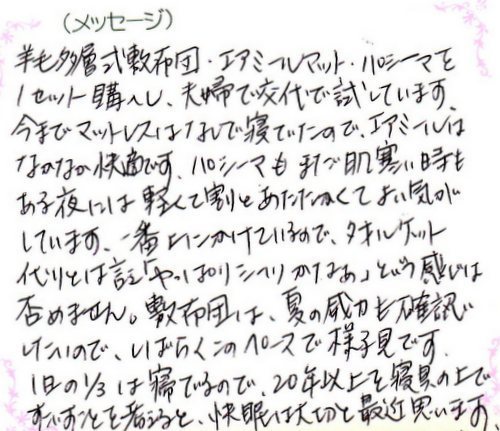 (メッセージ)
羊毛多層式敷布団・エアミールマット・パシーマを
1セット購入し、夫婦で交代で試しています。
今までマットレスはなしで寝ていたので、エアミールは
なかなか快適です。パシーマもまだ肌寒い時も
ある夜には軽くて割とあたたかくてよい気が
しています。一番上にかけているので、タオルケット
代りとは言え「やっぱりシーツかなぁ」という感じは
否めません。敷布団は、夏の威力も確認し
たいので、しばらくこのペースで様子見です。
1日の1/3は寝てるので、20年以上を寝具の上で
すごすことを考えると、快眠は大切と最近思います。